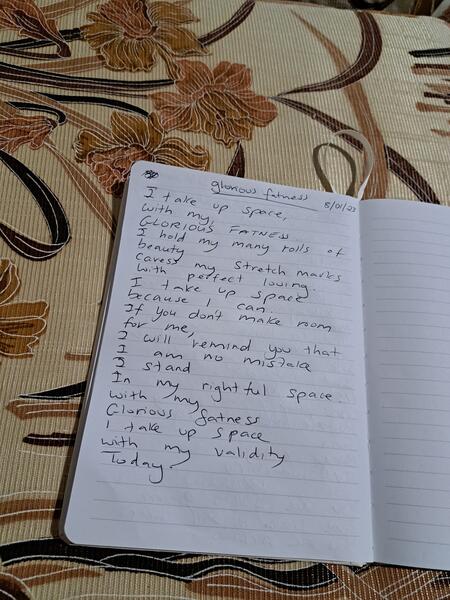 glorious fatness
8/01/23
I take up space,
with my,
GLORIOUS FATNESS
I hold my many rolls of
beauty
caress my stretch marks
with perfect loving.
I take up space
because I can.
If you don't make room
for me,
I will remind you that
I am no mistake
I stand
In my rightful space.
with my
Glorious fatness
I take up space
with my validity
Today.